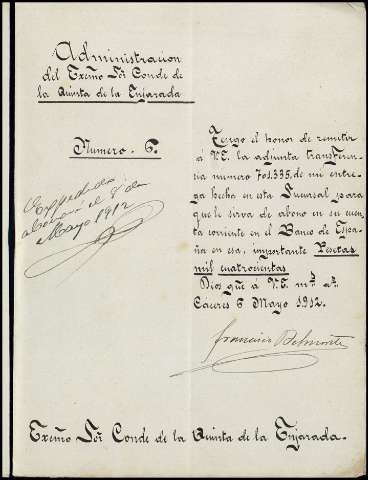 Administracion
del Excmo Sor Conde de
la Quinta de la Enjarada
Numero. 6.
Expedido
abono el 8 de
Mayo 1912
Tengo el honor de remitir
á V.E. la adjunta transferen
cia numero 701.335, de mi entre
ga hecha en esta Sucursal para
que le sirva de abono en su cuen
ta corriente en el Banco de Espa
ña en esa, importante Pesetas
mil cuatrocientas
Dios gūe á V.E. ms as
Cáceres 6 Mayo 1912.
Francisco Belmonte
Excmo Sor Conde de la Quinta de la Enjarada.